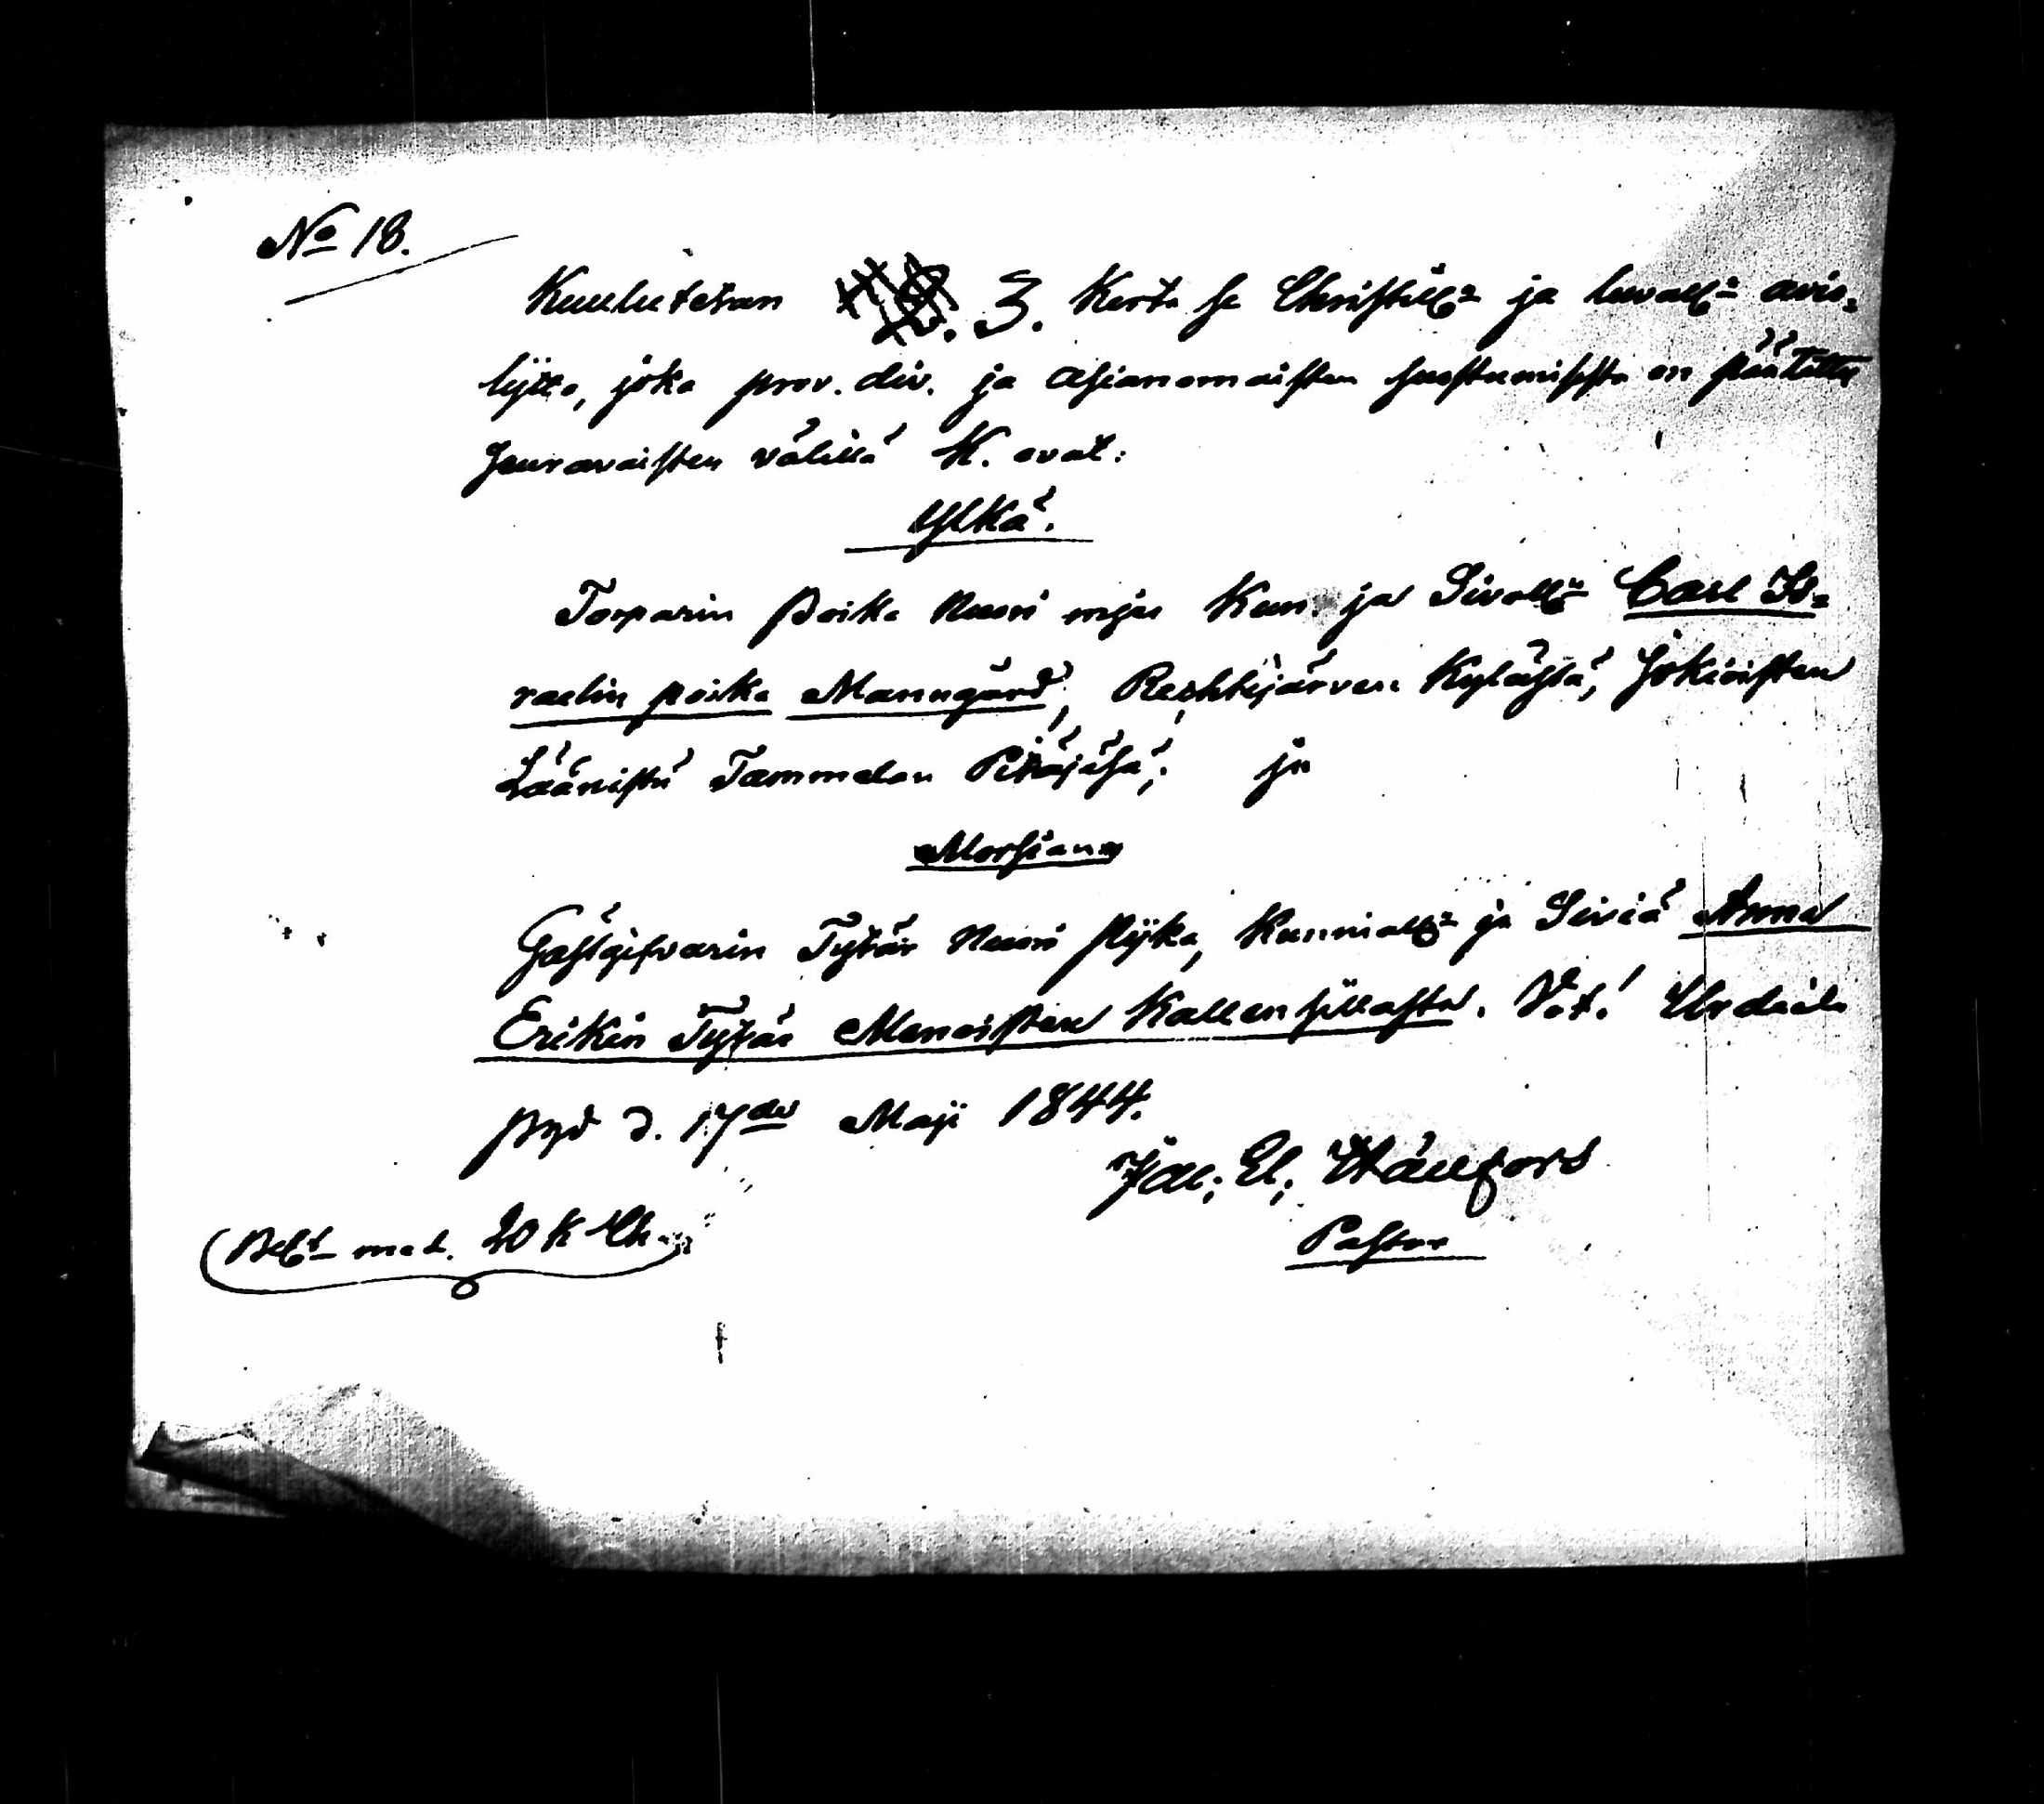 No 18.
Kuulutetan 3. Kerta se Christill. ja luvall. avio-
lijtto, joka prov. div. ja asianomaisten suostumisesta on päätetty
seuravaisten välillä K. ovat:
Ylkä.
Torparin Poika Nuori mjes Kun. ja Sivoll. Carl Is-
raelin poika Manngård, Rechtijärven Kylästä, Jokioisten
Läänistä Tammelan Pitäjäsä; ja
Morsian
Gästgifvarin Tytär Nuori Pijka, Kunniall. ja Siviä Anna
Erikin Tytär Manoisten Kallensillasta. Vot. Urdiala
Pgd d. 17de Maji 1844.
Jac. El. Hällfors
Pastor
(Belt med. 20 K